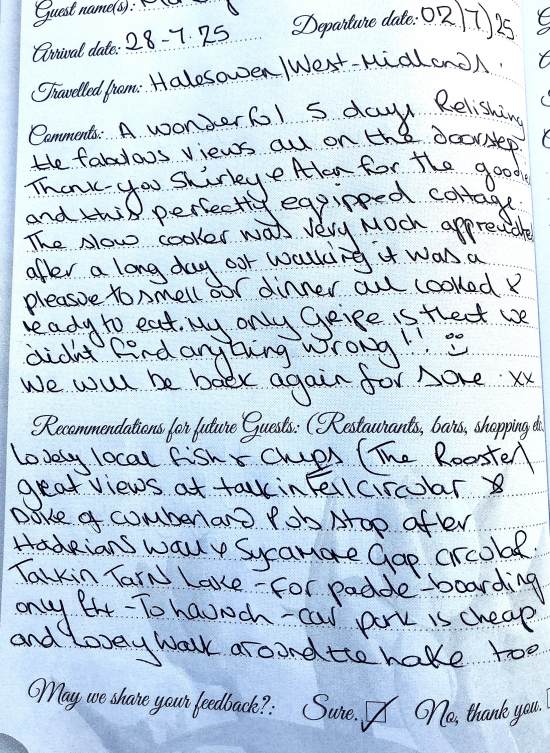 Guest name(s):
Arrival date: 28-7-25 Departure date: 02/7/25
Travelled from: Halesowen/West-Midlands.
Comments: A wonderful 5 days Relishing
the fabulous views all on the doorstep
Thank-you Shirley & Alan for the goodie
and this perfectly eqipped cottage.
The slow cooker was very much appreciated
after a long day out walking it was a
pleasure to smell our dinner all cooked &
ready to eat. My only Gripe is that we
didn't find anything wrong!!
We will be back again for sure. xx
Recommendations for future Guests: (Restaurants, bars, shopping etc.
Lovely local fish & chips (The Rooster)
great views at talkin Fell circular &
Duke of cumberland Pub stop after
Hadrians wall & Sycamore Gap circular.
Talkin Tarn Lake - For paddle-boarding
only - To launch - car park is cheap
and Lovely walk around the lake too
May we share your feedback?: Sure. No, thank you.